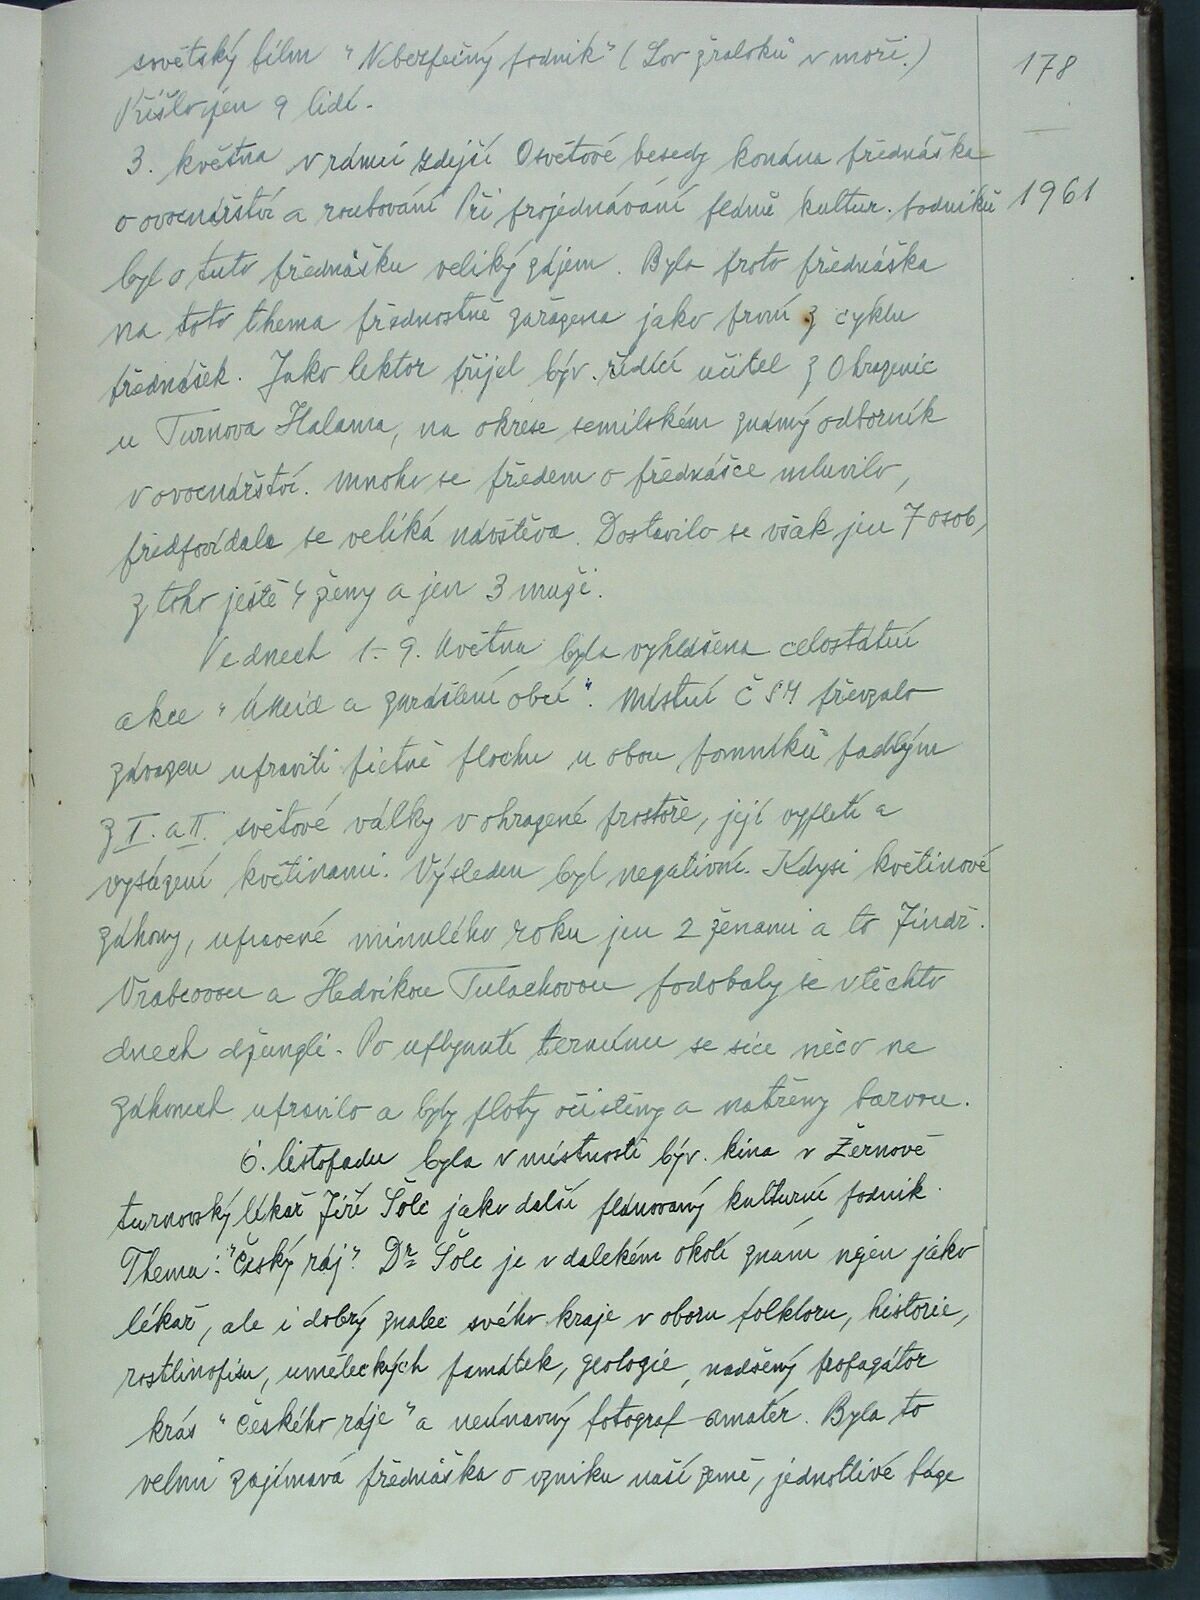 sovětský film "Nebezpečný podnik" (Lov žraloků v moři.)
Přišlo jen 9 lidí.
178
3. května v rámci zdejší Osvětové besedy konána přednáška
o ovocnářství a roubování Při projednávání plánu kultur. podniků
1961
byl o tuto přednášku veliký zájem. Byla proto přednáška
na toto thema přednostně zařazena jako první z cyklu
přednášek. Jako lektor přijel býv. řídící učitel z Ohrazenic
u Turnova Halama, na okrese semilském známý odborník
v ovocnářství. Mnoho se předem o přednášce mluvilo,
předpovídala se veliká návštěva. Dostavilo se však jen 7 osob,
z toho ještě 4 ženy a jen 3 muži.
Ve dnech 1.-9. května byla vyhlášena celostátní
akce "Úklid a zkrášlení obcí". Místní ČSM převzalo
závazek upraviti pietně plochu u obou pomníků padlým
z I. a II. světové války v ohrazené prostoře, její vypletí a
vysázení květinami. Výsledek byl negativní. Kdysi květinové
záhony, upravené minulého roku jen 2 ženami a to Jindř.
Vrabcovou a Hedvikou Tulachovou podobaly se v těchto
dnech džungli. Po uplynutí termínu se sice něco na
záhonech upravilo a byly ploty očistěny a natřeny barvou.
6. listopadu byla v místnosti býv. kina v Žernově
turnovský lékař Jiří Šolc jako další plánovaný kulturní podnik.
Thema: "Český ráj". Dr Šolc je v dalekém okolí znám nejen jako
lékař, ale i dobrý znalec svého kraje v oboru folkloru, historie,
rostlinopisu, uměleckých památek, geologie, nadšený propagátor
krás "Českého ráje" a neúnavný fotograf-amatér. Byla to
velmi zajímavá přednáška o vzniku naší země, jednotlivé fáze